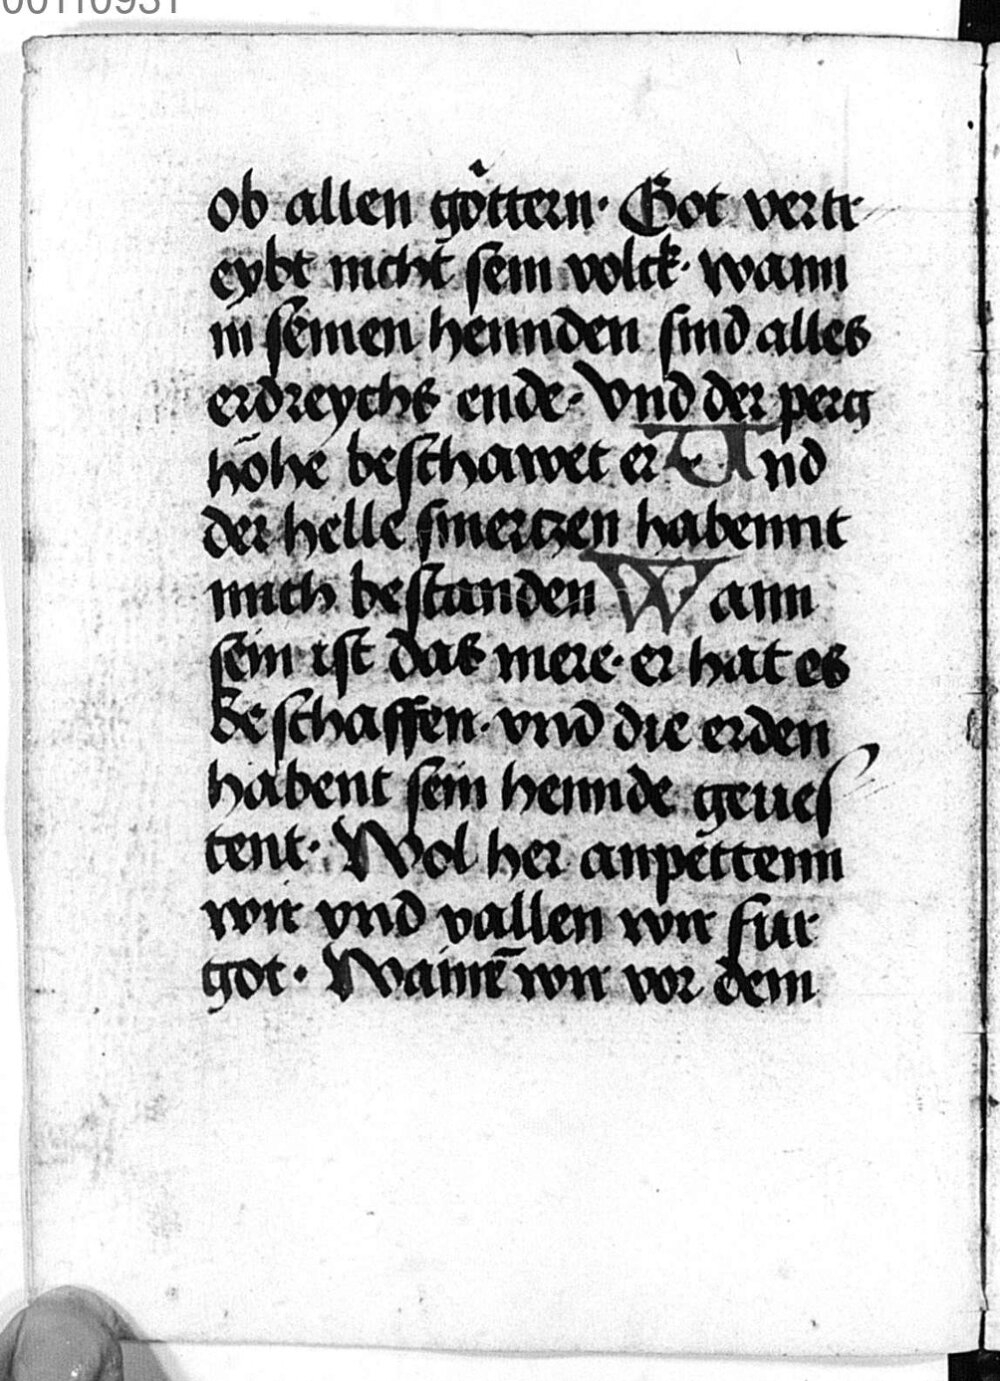 00110931
ob allen göttern· Got vertr
eybt nicht sein volck· wann
in seinen hennden sind alles
erdreychs ende· Vnd der perg
höhe beschawet er Vnd
der helle smertzen habennt
mich bestanden Wann
sein ist das mere· er hat es
beschaffen· vnd die erden
habent sein hennde geues
tent· Wol her anpettenn
wir vnd vallen wir fur
got· Wainē wir vor dem